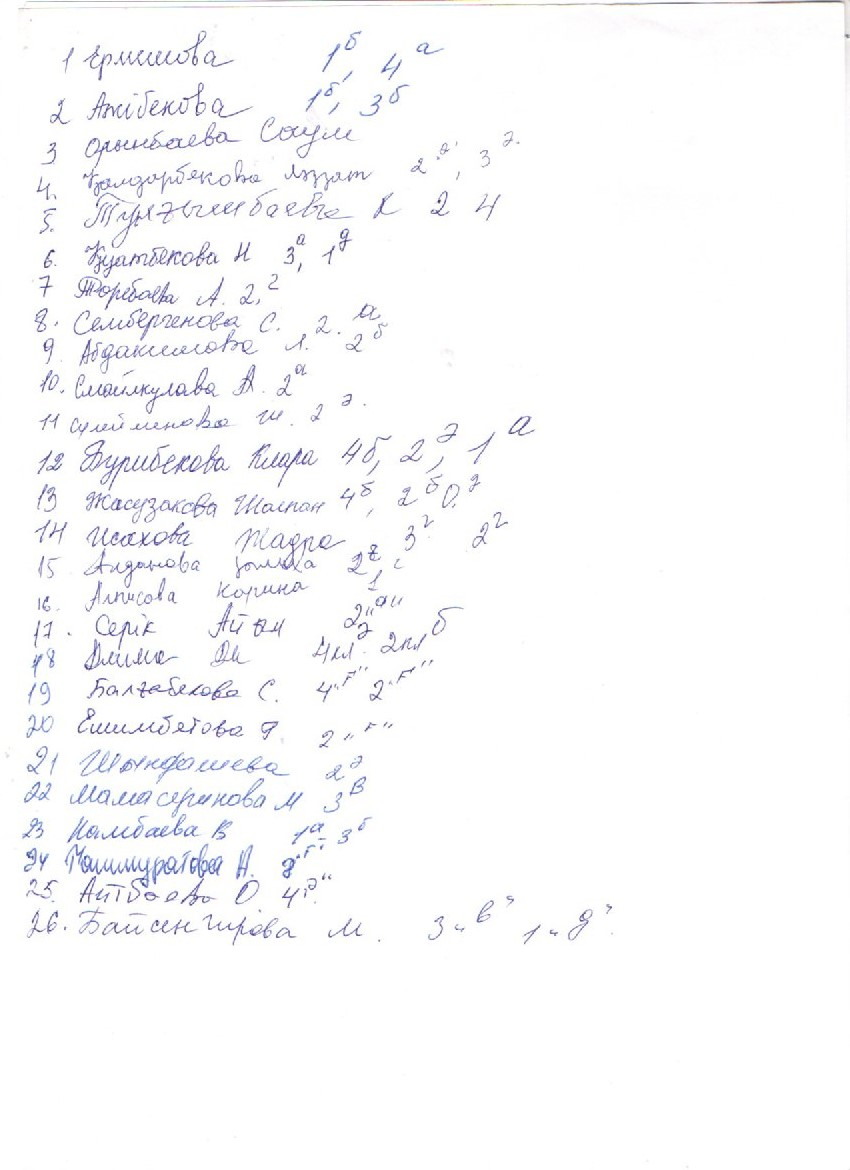 1 Ермекова 1б, 4а
2 Ажібекова 1б, 3б
3 Орынбаева Сауле
4. Қалдарбекова Ляззат 2"Э", 3Э.
5. К 2 4
6. Қуатбекова Н 3а, 1д
7 Торебаева А. 2,г
8. Сембергенова С. 2. а
9. Абдакимова Л. 2б
10. Смайлкулава А. 2а
11 Сулейменова Ш. 2Э.
12 Бурибекова Клара 4б, 2Э, 1а
13 Жасузакова Шолпан 4б, 2б
14 Исахова Жадра 3г 2г
15 Айданова
16. Карина 1
17. Серік 2"а"
18 Дина 4кл Э. 2клб
19 Балғабекова С. 4"Г" 2"Г"
20 Ешимбетова Р 2"Г"
21 Шындашева 2Э
22 Мамасерикова М 3В
23 Камбаева В 1а 3б
24 Ташмуратова Н.
25. Айтбаева О 4
26. Байсенгирова М. 3"В" 1"д".